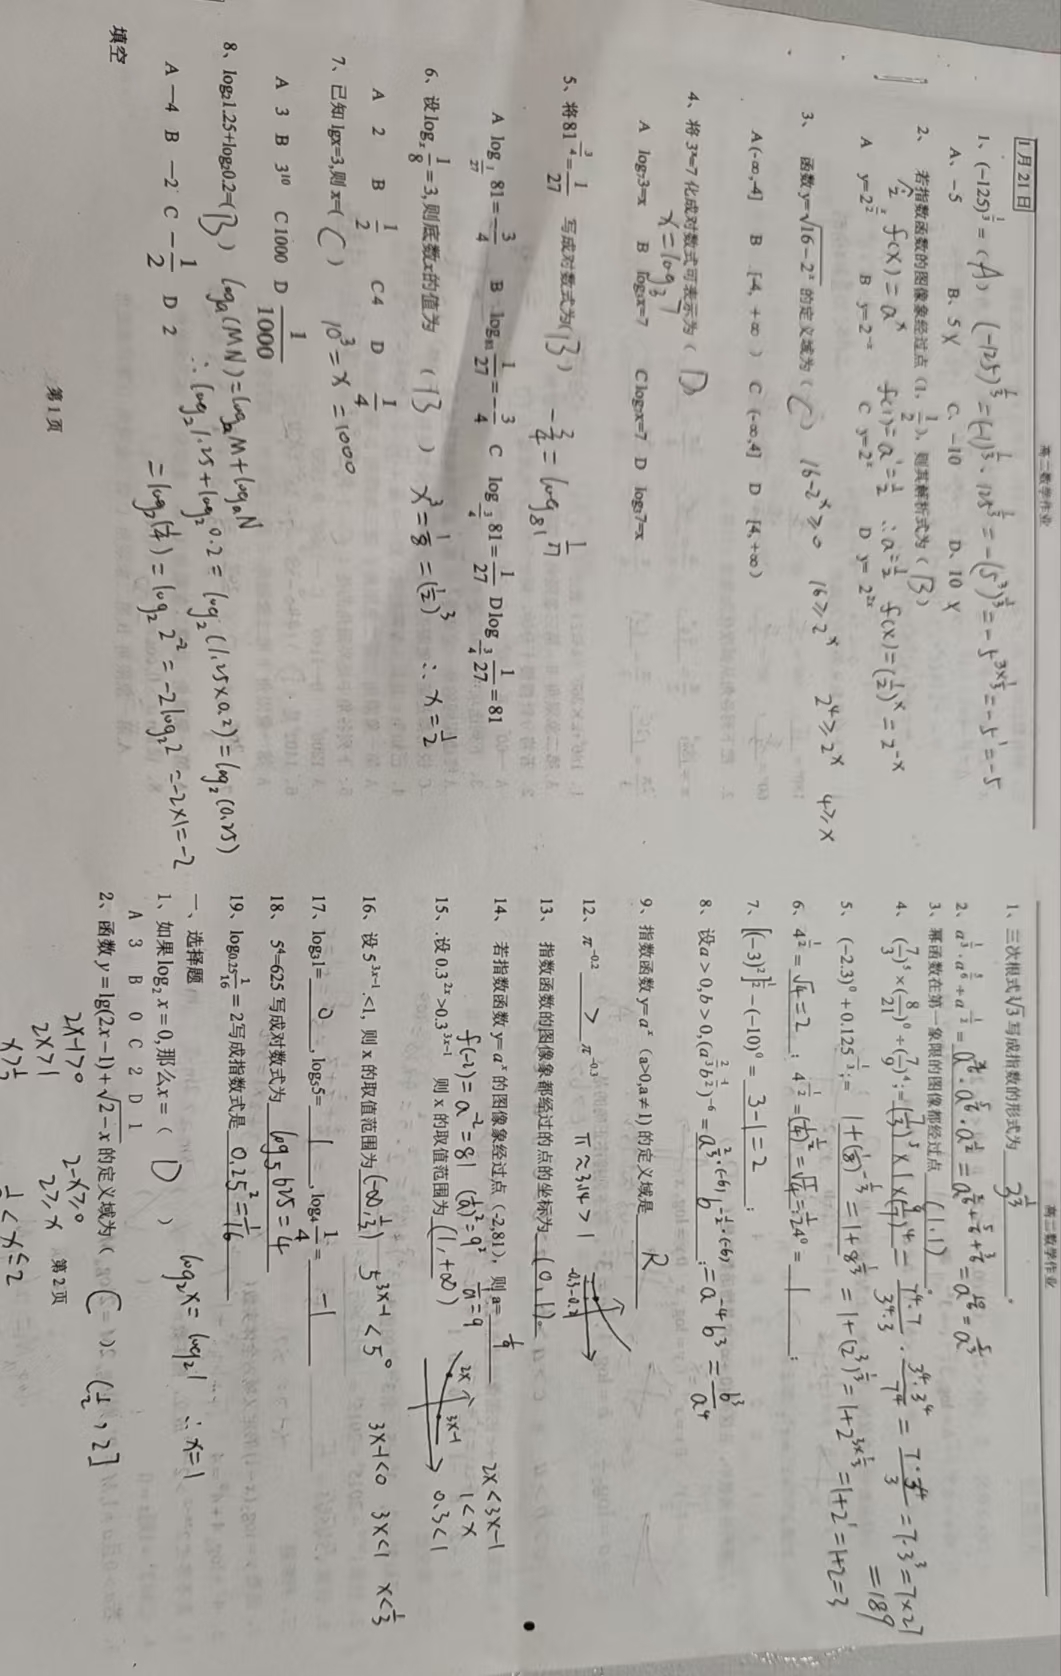 高二数学作业
1月21日
1、(-125)^{1/3} = (A) (-125)^{1/3} = (-1)^{1/3}·125^{1/3} = -(5^3)^{1/3} = -5^{3×1/3} = -5^1 = -5
A、-5 B、5 X C、-10 D、10 X
2、若指数函数的图像象经过点(1, 1/2), 则其解析式为(B)
f(x)=a^x f(1)=a^1=1/2 ∴a=1/2 f(x)=(1/2)^x=2^{-x}
B y=2^{-x} C y=2^x D y=2^{2x}
3、函数 y=√(16-2^x) 的定义域为(C) 16-2^x≥0 16≥2^x 2^4≥2^x 4≥x
A(-∞,-4] B [-4,+∞) C (-∞,4] D [4,+∞)
4、将 3^x=7 化成对数式可表示为(D)
x=log_3 7
A log_7 3=x B log_3 x=7 C log_7 x=7 D log_3 7=x
5、将 81^{-3/4}=1/27 写成对数式为(B) -3/4=log_81 1/27
A log_{1/27} 81=-3/4 B log_81 1/27=-3/4 C log_{-3/4} 81=1/27 D log_{-3/4} 1/27=81
6、设 log_x 1/8=3, 则底数x的值为(B) x^3=1/8=(1/2)^3 ∴x=1/2
A 2 B 1/2 C 4 D 1/4
7、已知 lgx=3, 则 x=(C) 10^3=x=1000
A 3 B 3^{10} C 1000 D 1/1000
8、log_2 1.25+log_2 0.2=(B) log_a(MN)=log_a M+log_a N
∴log_2 1.25+log_2 0.2=log_2(1.25×0.2)=log_2(0.25)
A —4 B —2 C -1/2 D 2
=log_2(1/4)=log_2 2^{-2}=-2log_2 2=-2×1=-2
填空
第1页
高二数学作业
1、三次根式 ∛3 写成指数的形式为 3^{1/3}。
2、a^{1/3}·a^{5/6}÷a^{-1/2}= a^{2/6}·a^{5/6}·a^{1/2}=a^{2/6+5/6+3/6}=a^{10/6}=a^{5/3}
3、幂函数在第一象限的图像都经过点 (1.1)
4、(7/3)^5×(8/21)^0÷(7/9)^4= (7/3)^5×1×(9/7)^4=7^4·7/3^4·3·3^4·3^4/7^4=7·3^4/3=7·3^3=7×27
=189
5、(-2.3)^0+0.125^{-1/3}= 1+(1/8)^{-1/3}=1+8^{1/3}=1+(2^3)^{1/3}=1+2^{3×1/3}=1+2^1=1+2=3
6、4^{1/2}=√4=2; 4^{-1/2}=(1/4)^{1/2}=√(1/4)=1/2 4^0= 1;
7、[(-3)^2]^{1/2}-(-10)^0= 3-1=2;
8、设 a>0,b>0,(a^{2/3}b^{-1/2})^{-6}= a^{2/3·(-6)} b^{-1/2·(-6)}; =a^{-4}b^3=b^3/a^4
9、指数函数 y=a^x (a>0,a≠1) 的定义域是 R
12、π^{-0.2} > π^{-0.3} π≈3.14>1 -0.3 -0.2
13、指数函数的图像象都经过的点的坐标为 (0,1)。
14、若指数函数 y=a^x 的图像象经过点(-2,81), 则 a= 1/9
f(-2)=a^{-2}=81 (1/a)^2=9^2 1/a=9
15、设 0.3^{2x}>0.3^{3x-1} 则 x 的取值范围为 (1,+∞) 2x 3x-1 2x<3x-1
1<x
0.3<1
16、设 5^{3x-1}<1, 则 x 的取值范围为 (-∞,1/3) 5^{3x-1}<5^0 3x-1<0 3x<1 x<1/3
17、log_3 1= 0, log_5 5= 1, log_4 1/4= -1
18、5^4=625 写成对数式为 log_5 625=4
19、log_{0.25} 1/16=2 写成指数式是 0.25^2=1/16
一、选择题
1、如果 log_2 x=0, 那么 x=(D) log_2 x=log_2 1 ∴x=1
A 3 B 0 C 2 D 1
2、函数 y=lg(2x-1)+√(2-x) 的定义域为(C) (1/2,2]
2x-1>0 2-x≥0
2x>1 2≥x
x>1/2 1/2<x≤2
第2页